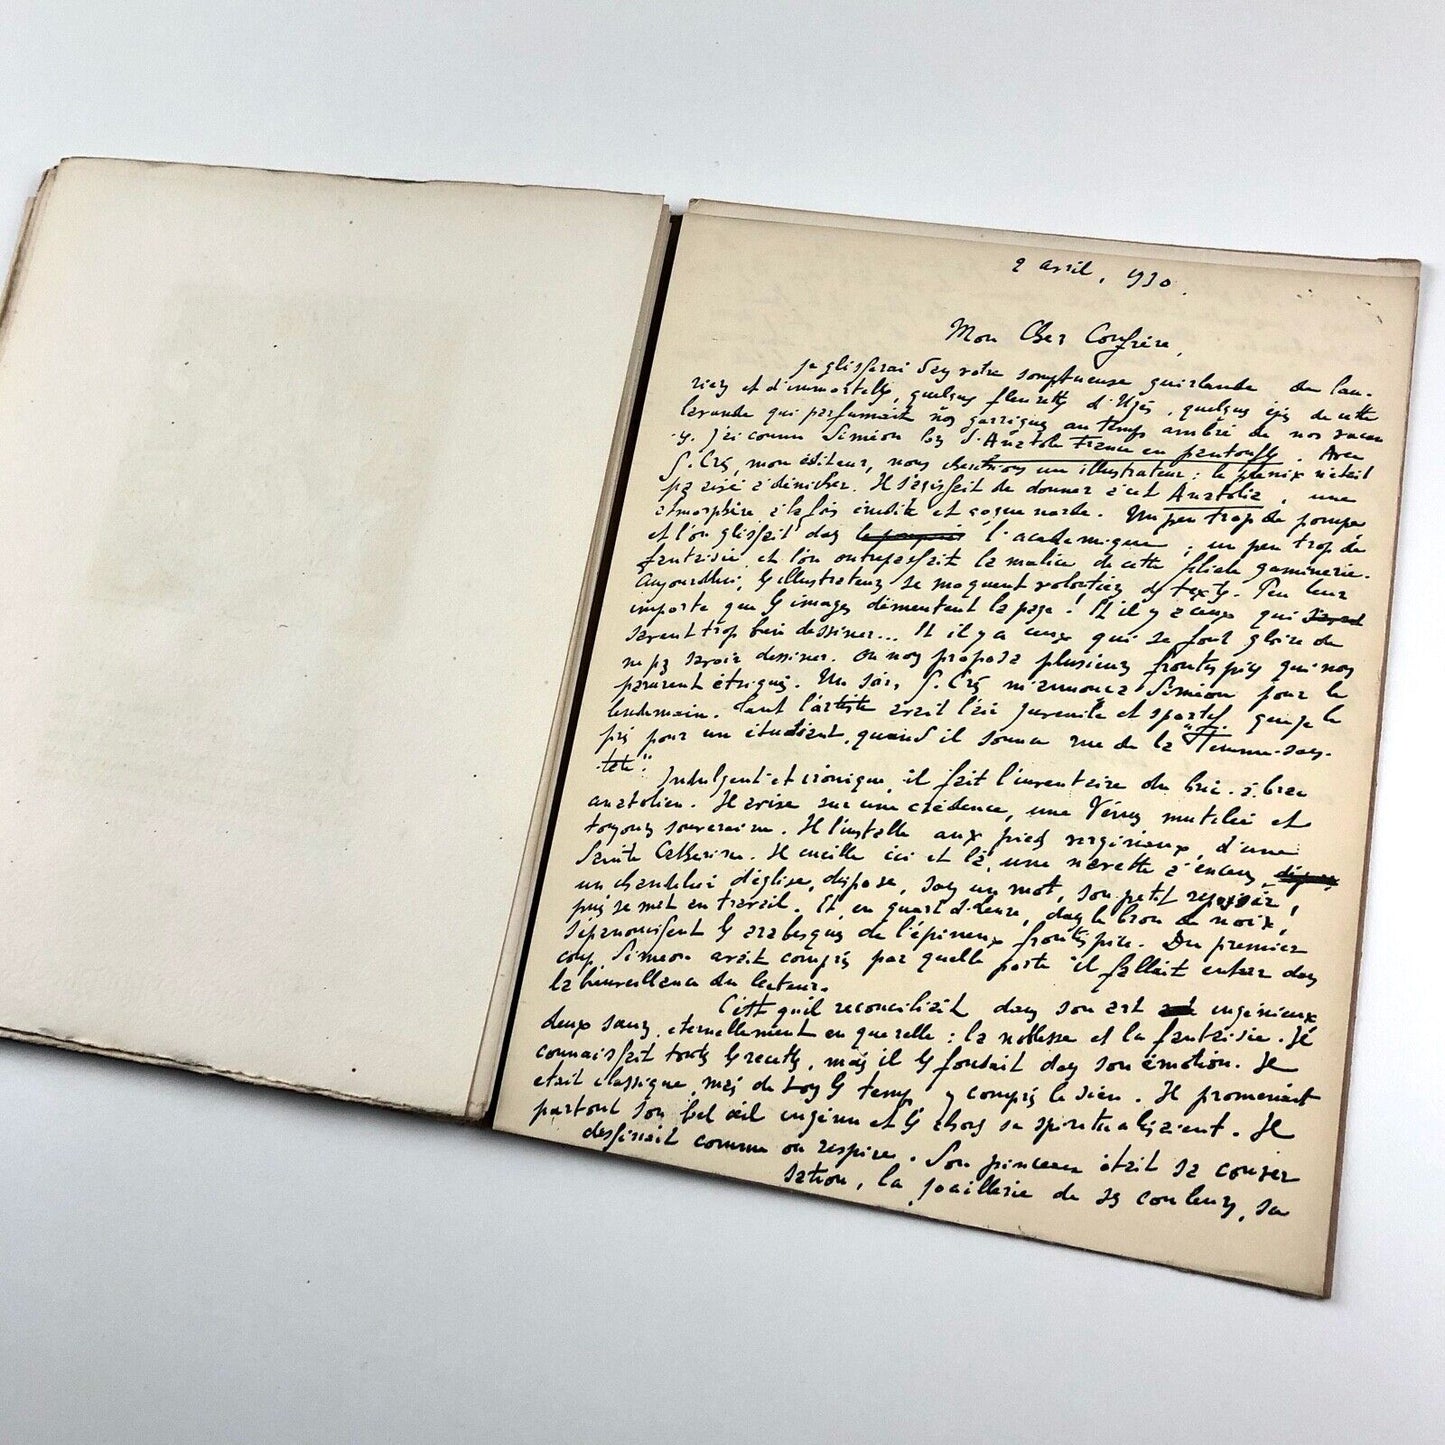 2 avril, 1930.
Mon Cher Confrère,
je glisserai dans votre somptueuse guirlande de lau-
riers et d'immortelles, quelques fleurettes d'Uzès, quelques épis de cette
lavande qui parfumait nos garrigues au temps ambré de nos vacan-
J'ai connu Siméon lors d'Anatole France en pantoufles. Avec
G. Crès, mon éditeur, nous cherchions un illustrateur : le phénix n'était
pas aisé à dénicher. Il s'agissait de donner à cet Anatolia, une
atmosphère à la fois érudite et goguenarde. Un peu trop de pompe
et l'on glissait dans l'académique ; un peu trop de
fantaisie et l'on outrepassait la malice de cette filiale gaminerie.
Aujourd'hui, les illustrateurs se moquent volontiers des textes. Peu leur
importe que les images démentent la page ! Et il y a ceux qui
savent trop bien dessiner... Et il y a ceux qui se font gloire de
ne pas savoir dessiner. On nous proposa plusieurs frontispices qui nous
parurent étriqués. Un soir, G. Crès m'annonça Siméon pour le
lendemain. Tant l'artiste avait l'air juvenile et sportif que je le
pris pour un étudiant, quand il sonna rue de la "Femme-sans-
-tête".
Indulgent et ironique, il fait l'inventaire du bric-à-brac
anatolien. Il avise sur une crédence, une Vénus mutilée et
toujours souveraine. Il l'installe aux pieds virginaux d'une
Sainte Catherine. Il cueille ici et là, une navette à encens,
un chandelier d'église, dispose, sans un mot, son petit reposoir,
puis se met en travail. Et, en quart d'heure, dans le brou de noix,
s'épanouissent les arabesques de l'épineux frontispice. Du premier
coup, Siméon avait compris par quelle porte il fallait entrer dans
la bienveillance du lecteur.
C'est qu'il reconciliait dans son art ingénieux
deux sœurs éternellement en querelle : la noblesse et la fantaisie. Il
connaissait toutes les recettes, mais il les fondait dans son émotion. Il
était classique, mais de tous les temps y compris le sien. Il promenait
partout son bel œil ingénu et les choses se spiritualisaient. Il
dessinait comme on respire. Son pinceau était sa conver
sation, la joaillerie de ses couleurs, sa